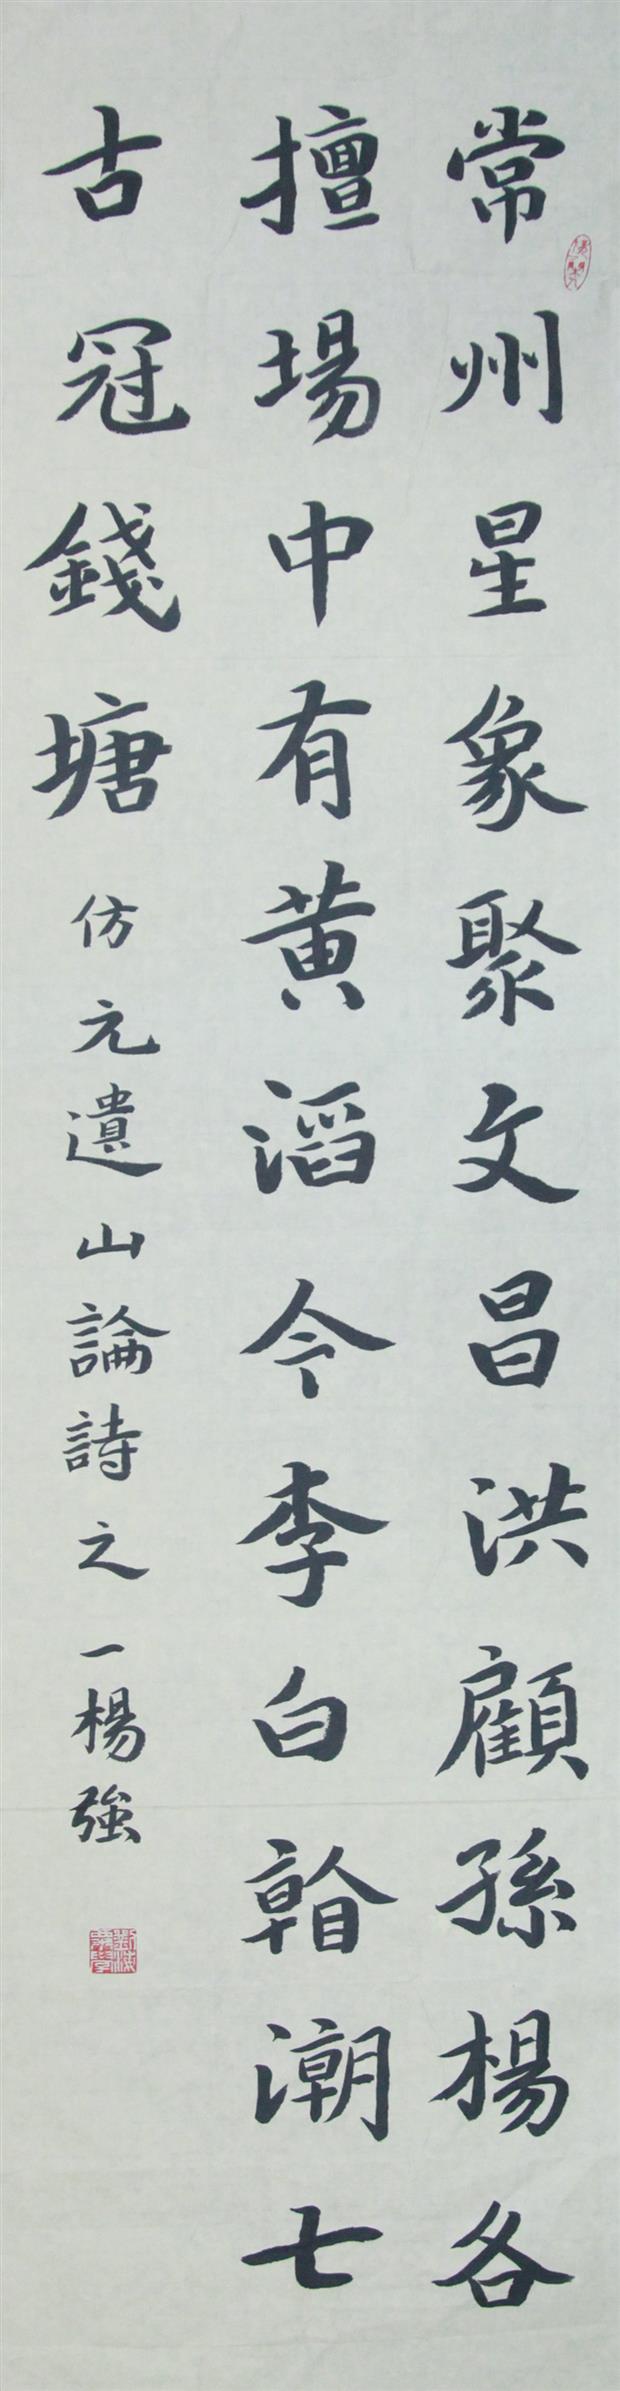 常州星象聚文昌洪顧孫楊各
擅場中有黄滔今李白觀潮七
古冠錢塘
仿元遺山論詩之一楊強